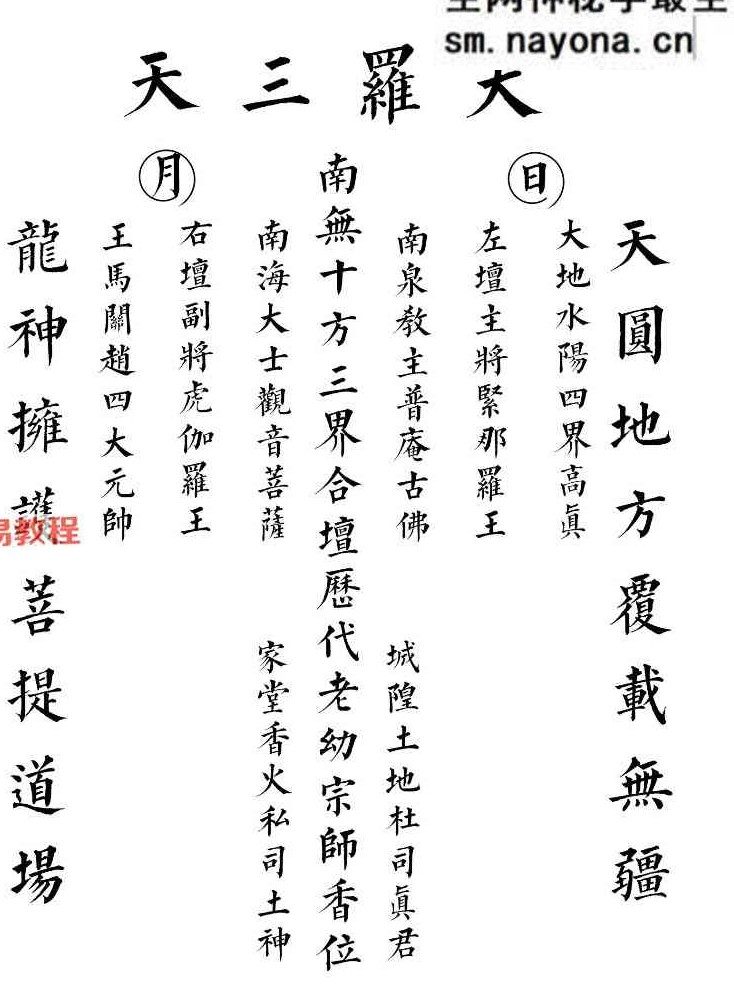 sm.nayona.cn
大羅三天
日
月
天圓地方覆載無疆
大地水陽四界高眞
左壇主將緊那羅王
南泉敎主普庵古佛
城隍土地杜司眞君
南無十方三界合壇歷代老幼宗師香位
南海大士觀音菩薩
家堂香火私司土神
右壇副將虎伽羅王
王馬關趙四大元帥
龍神擁護菩提道場
易教程